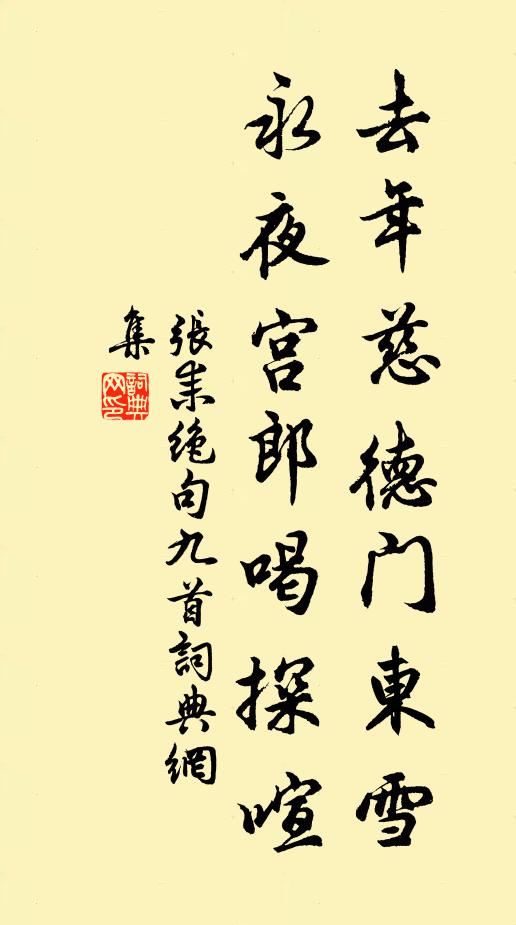 去年慈德門東雪
永夜宫郎喝探喧
張耒絶句九首詞典網
集
詞典
网印